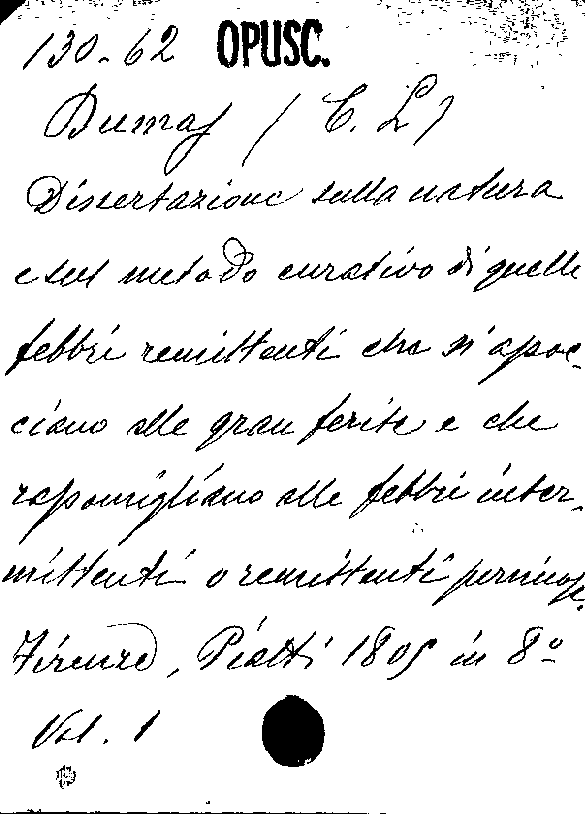 130-62 OPUSC.
Dumas (C. L)
Dissertazione sulla natura
e sul metodo curativo di quelle
febbri remittenti che s'apoc-
ciano alle gran ferite e che
rassomigliano alle febbri inter-
mittenti o remittenti perniciose.
Firenze, Piatti 1805 in 8º
Vol. 1